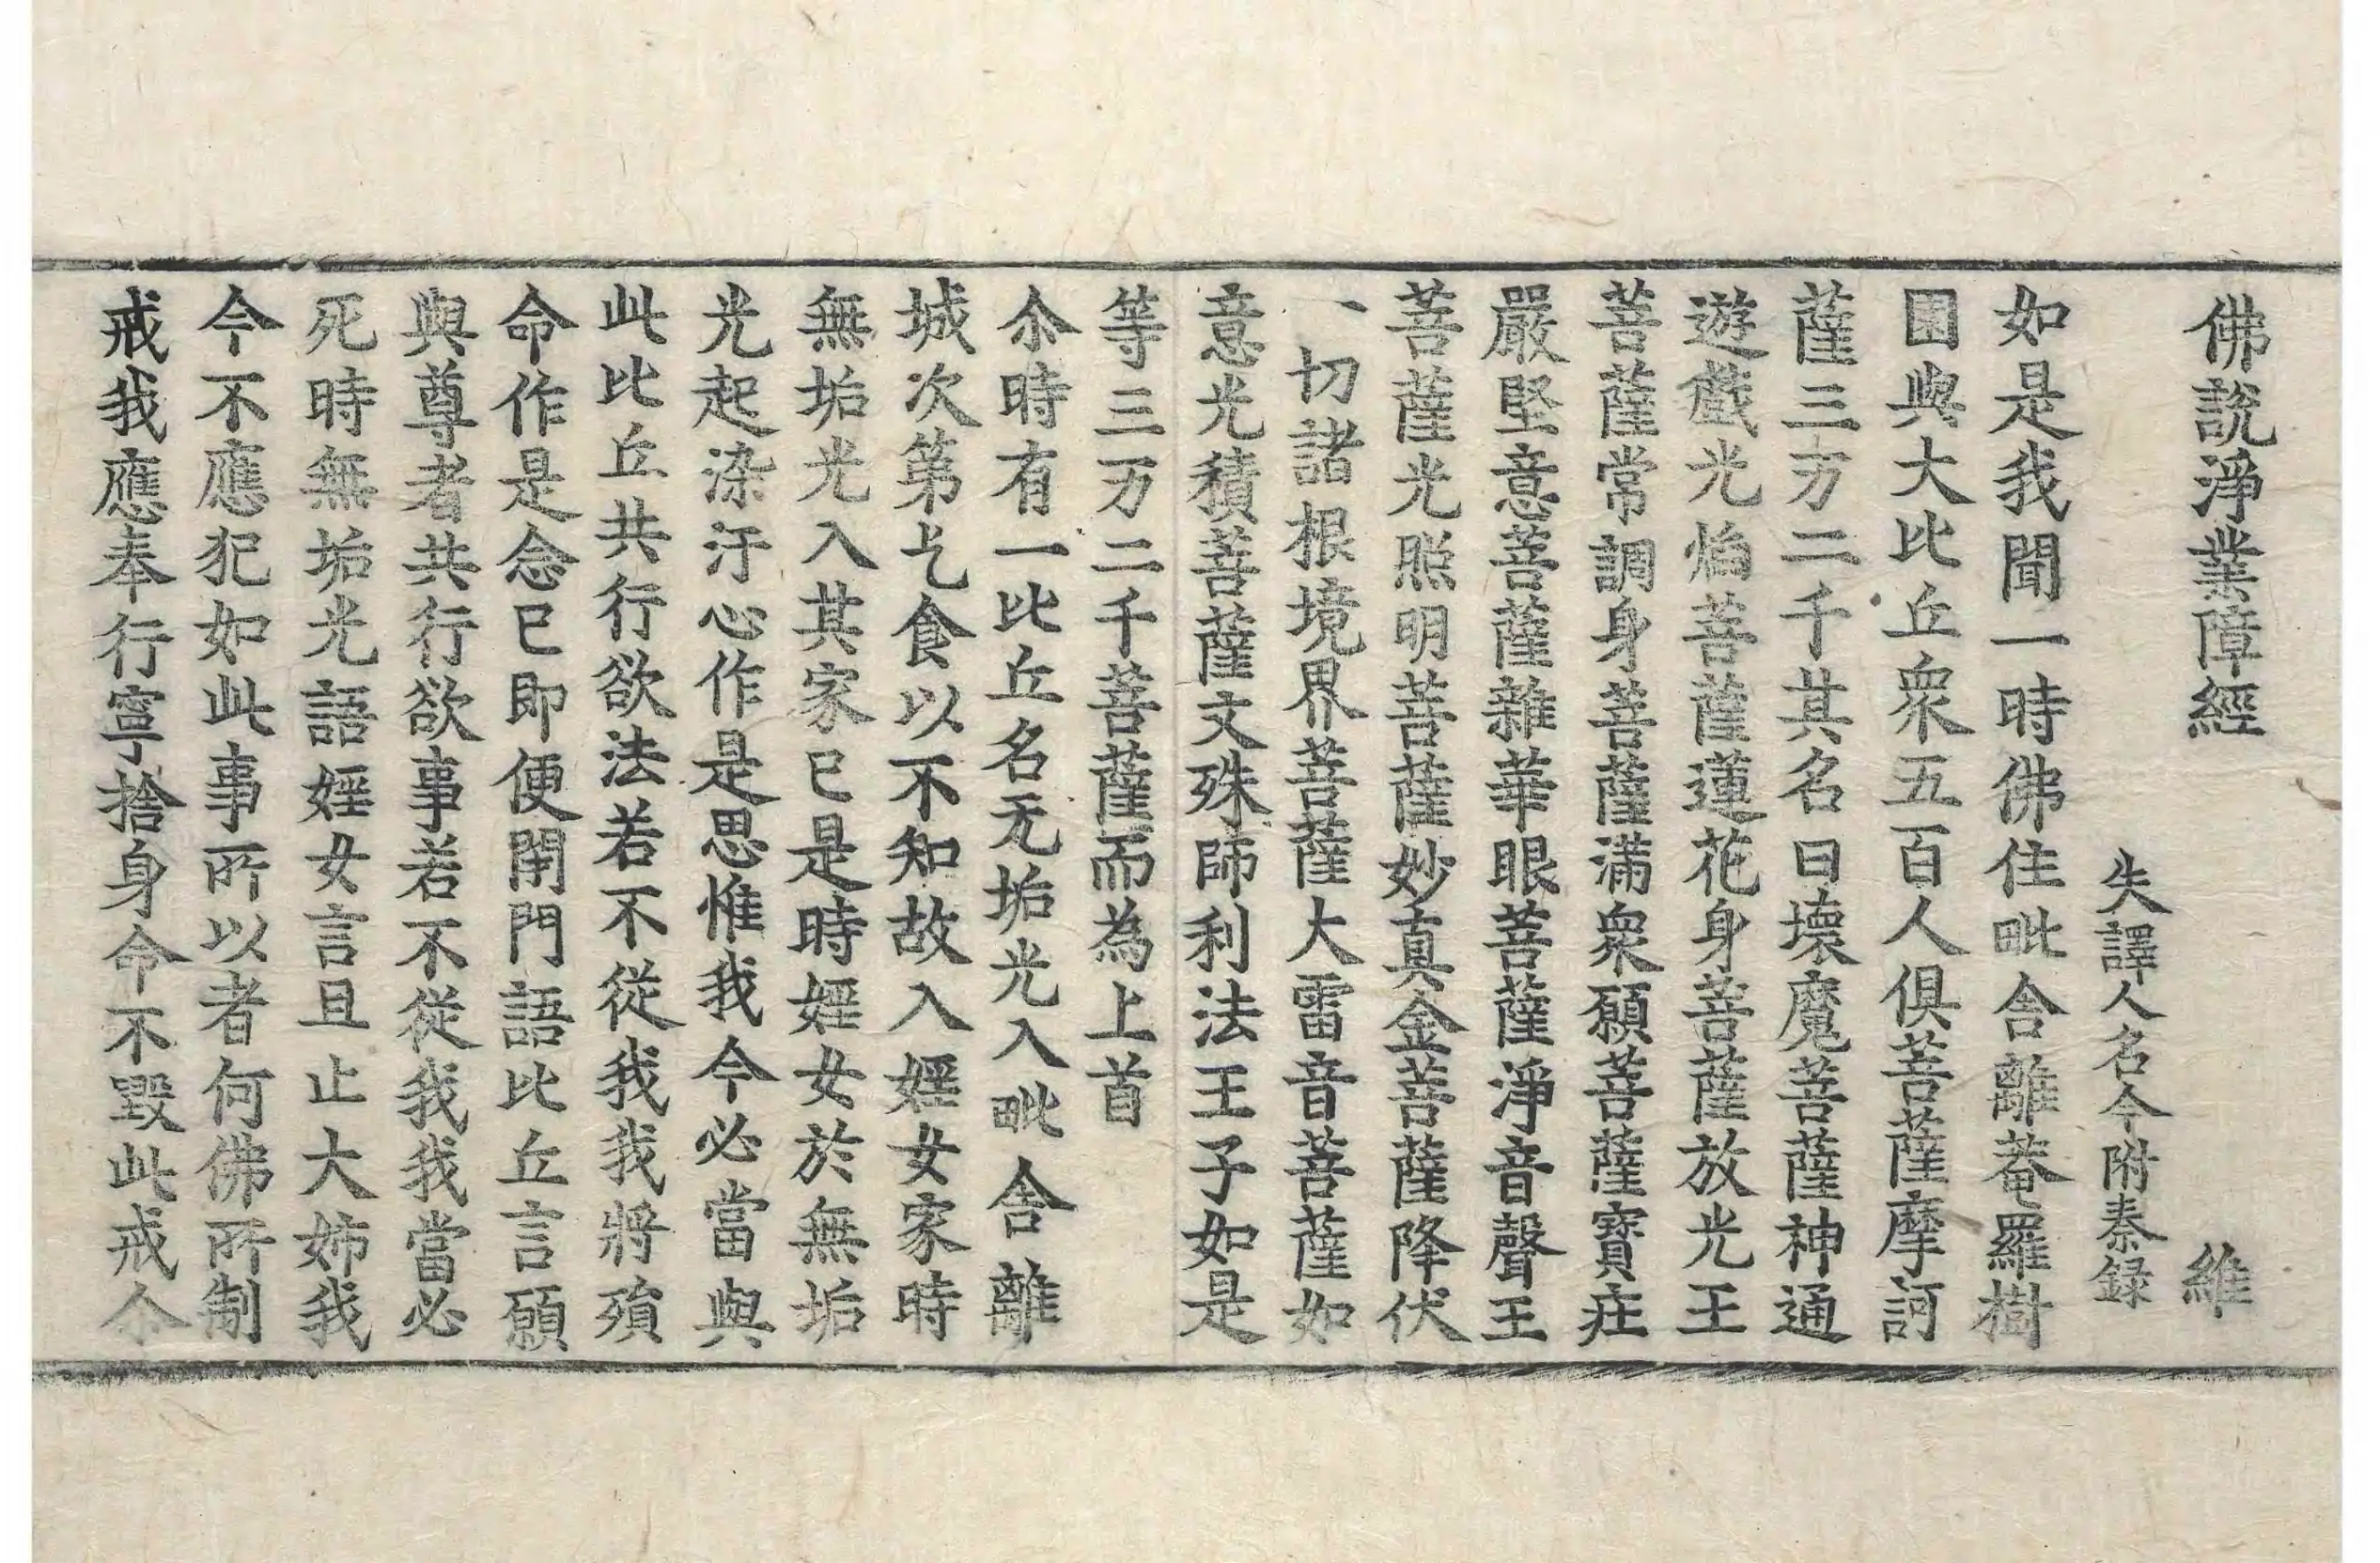 佛說淨業障經 維
失譯人名今附秦錄
如是我聞一時佛住毗舍離菴羅樹
園與大比丘衆五百人俱菩薩摩訶
薩三万二千其名曰壞魔菩薩神通
遊戲光焰菩薩蓮花身菩薩放光王
菩薩常調身菩薩滿衆願菩薩寶莊
嚴堅意菩薩雜華眼菩薩淨音聲王
菩薩光照明菩薩妙真金菩薩降伏
一切諸根境界菩薩大雷音菩薩如
意光積菩薩文殊師利法王子如是
等三万二千菩薩而為上首
尒時有一比丘名无垢光入毗舍離
城次第乞食以不知故入婬女家時
無垢光入其家已是時婬女於無垢
光起染汙心作是思惟我今必當與
此比丘共行欲法若不從我我將殞
命作是念已即便閉門語比丘言願
與尊者共行欲事若不從我我當必
死時無垢光語婬女言且止大姉我
今不應犯如此事所以者何佛所制
戒我應奉行寧捨身命不毀此戒尒